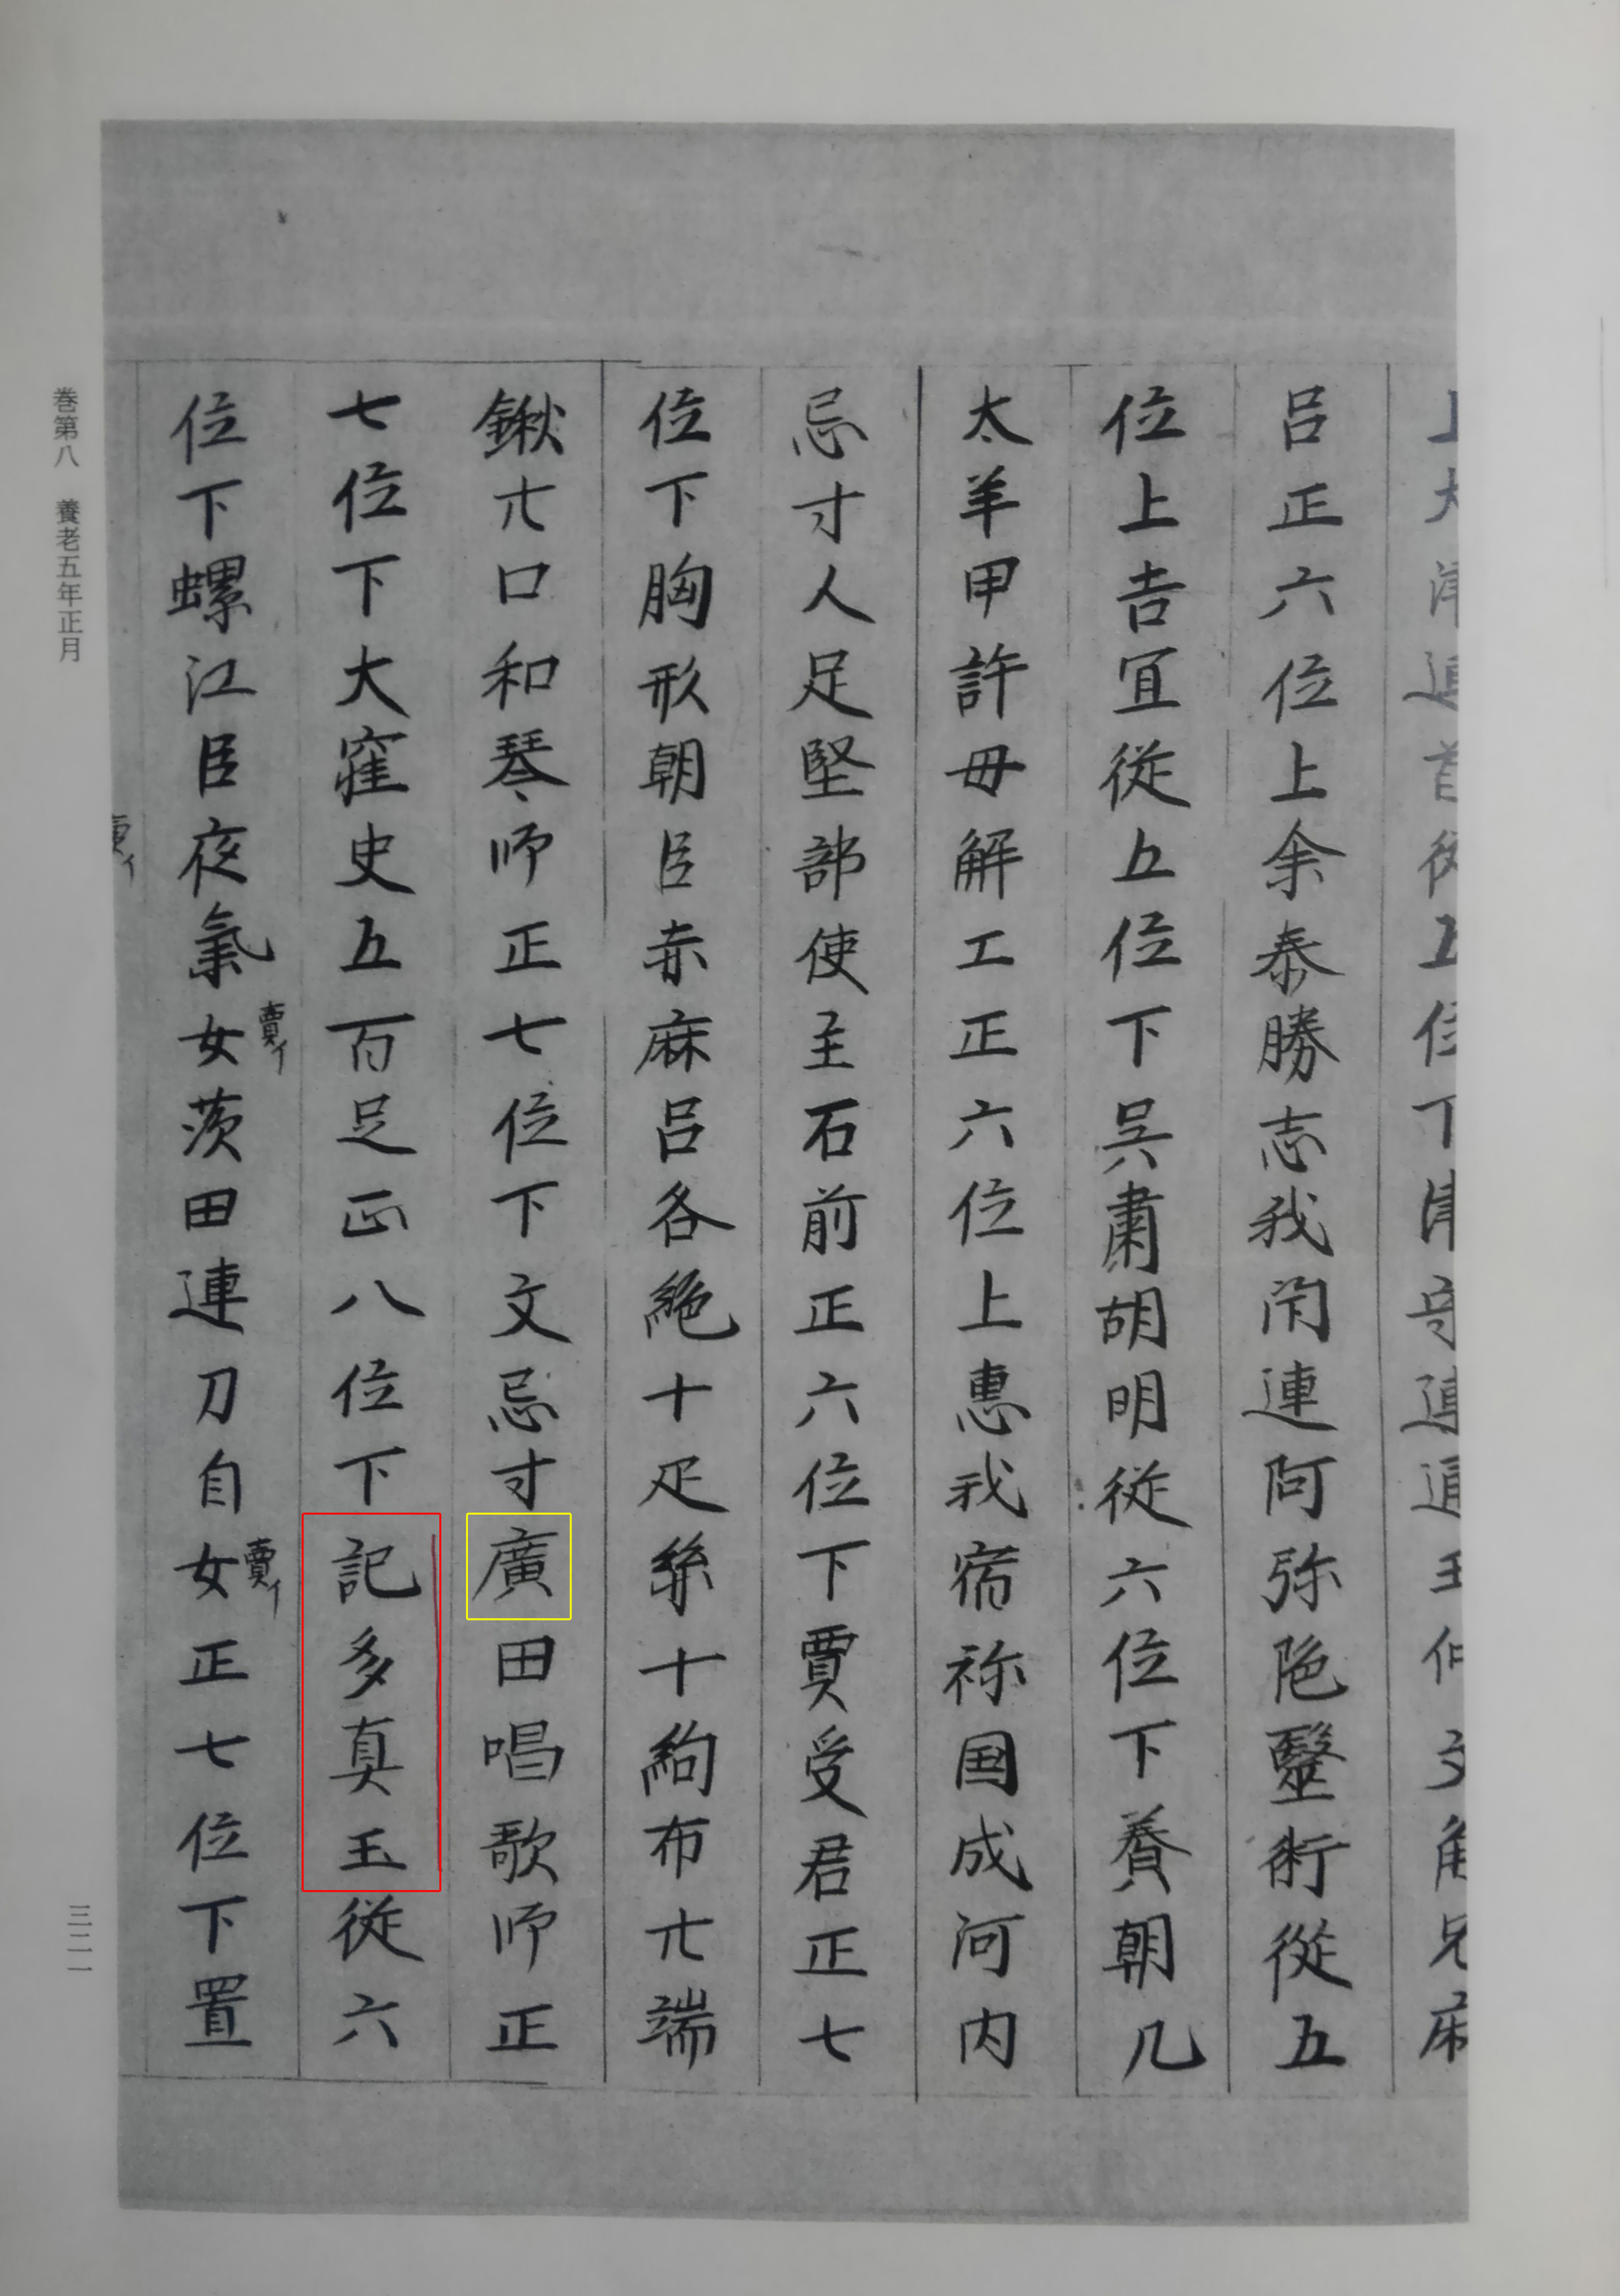 呂正六位上余泰勝志我閇連阿弥陁毉術従五
位上吉冝従五位下呉肅胡明従六位下賛朝几
太羊甲許毋解工正六位上惠我宿祢国成河内
忌寸人足堅部使主石前正六位下賈受君正七
位下胸形朝臣赤麻呂各絁十疋絲十絇布廿端
鍬廿口和琴師正七位下文忌寸廣田唱歌師正
七位下大窪史五百足正八位下記多真玉従六
位下螺江臣夜氣女茨田連刀自女正七位下置
賣イ
賣イ
賣イ
巻第八 養老五年正月
三二一